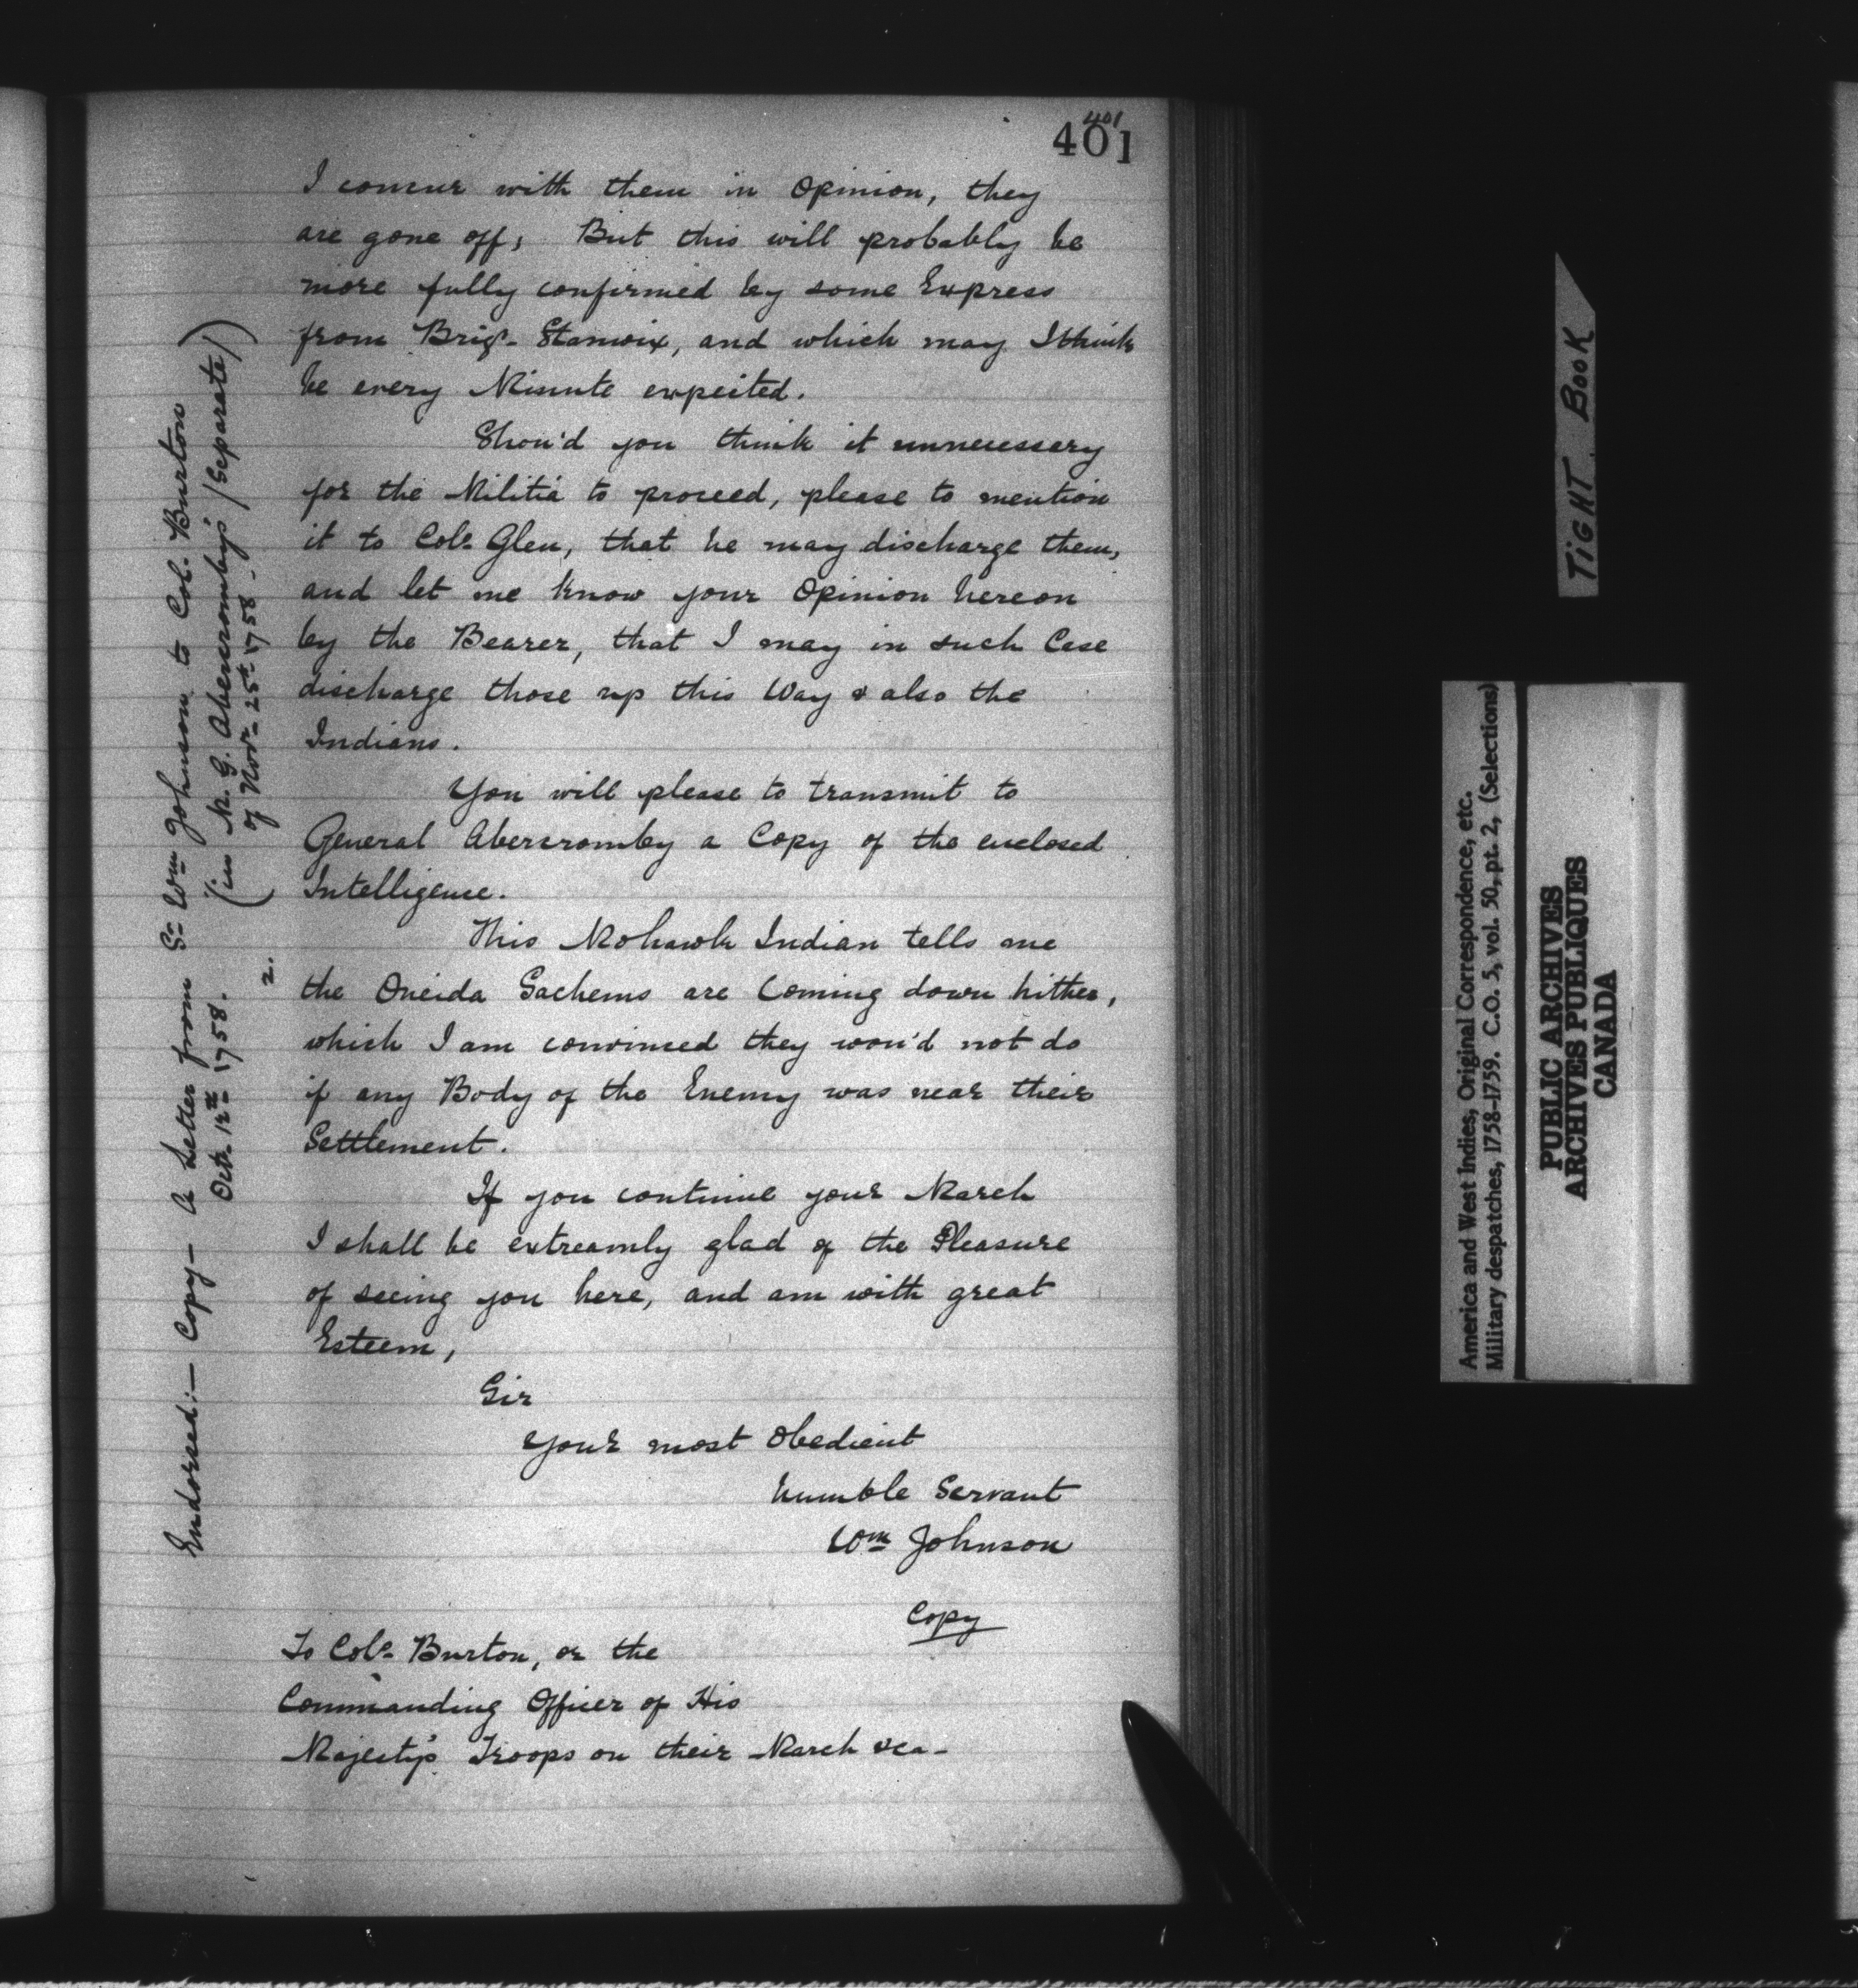 401
401
I concur with them in Opinion, they
are gone off; But this will probably be
more fully confirmed by some Express
from Brigr. Stanwix, and which may I think
be every Minute expected.
Shou'd you think it unnecessary
for the Militia to proceed, please to mention
it to Colo. Glen, that he may discharge them,
and let me know your Opinion hereon
by the Bearer, that I may in such Case
discharge those up this Way & also the
Indians.
You will please to transmit to
General Abercromby a Copy of the enclosed
Intelligence.
This Mohawk Indian tells me
the Oneida Sachems are Coming down hither,
which I am convinced they wou'd not do
if any Body of the Enemy was near their
Settlement.
If you continue your March
I shall be extreamly glad of the Pleasure
of seeing you here, and am with great
Esteem,
Sir
Your most Obedient
humble Servant
Wm Johnson
Copy
To Colo. Burton, or the
Commanding Officer of His
Majesty's Troops on their March &ca-
Endorsed:— Copy— A Letter from Sr. Wm Johnson to Col. Burton
Octr. 12th 1758. (in M. G. Abercromby's /Separate/)
of Novr. 25th 1758-
2.
TIGHT BOOK
America and West Indies, Original Correspondence, etc.
Military despatches, 1758-1759. C.O. 5, vol. 50, pt. 2, (Selections)
PUBLIC ARCHIVES
ARCHIVES PUBLIQUES
CANADA